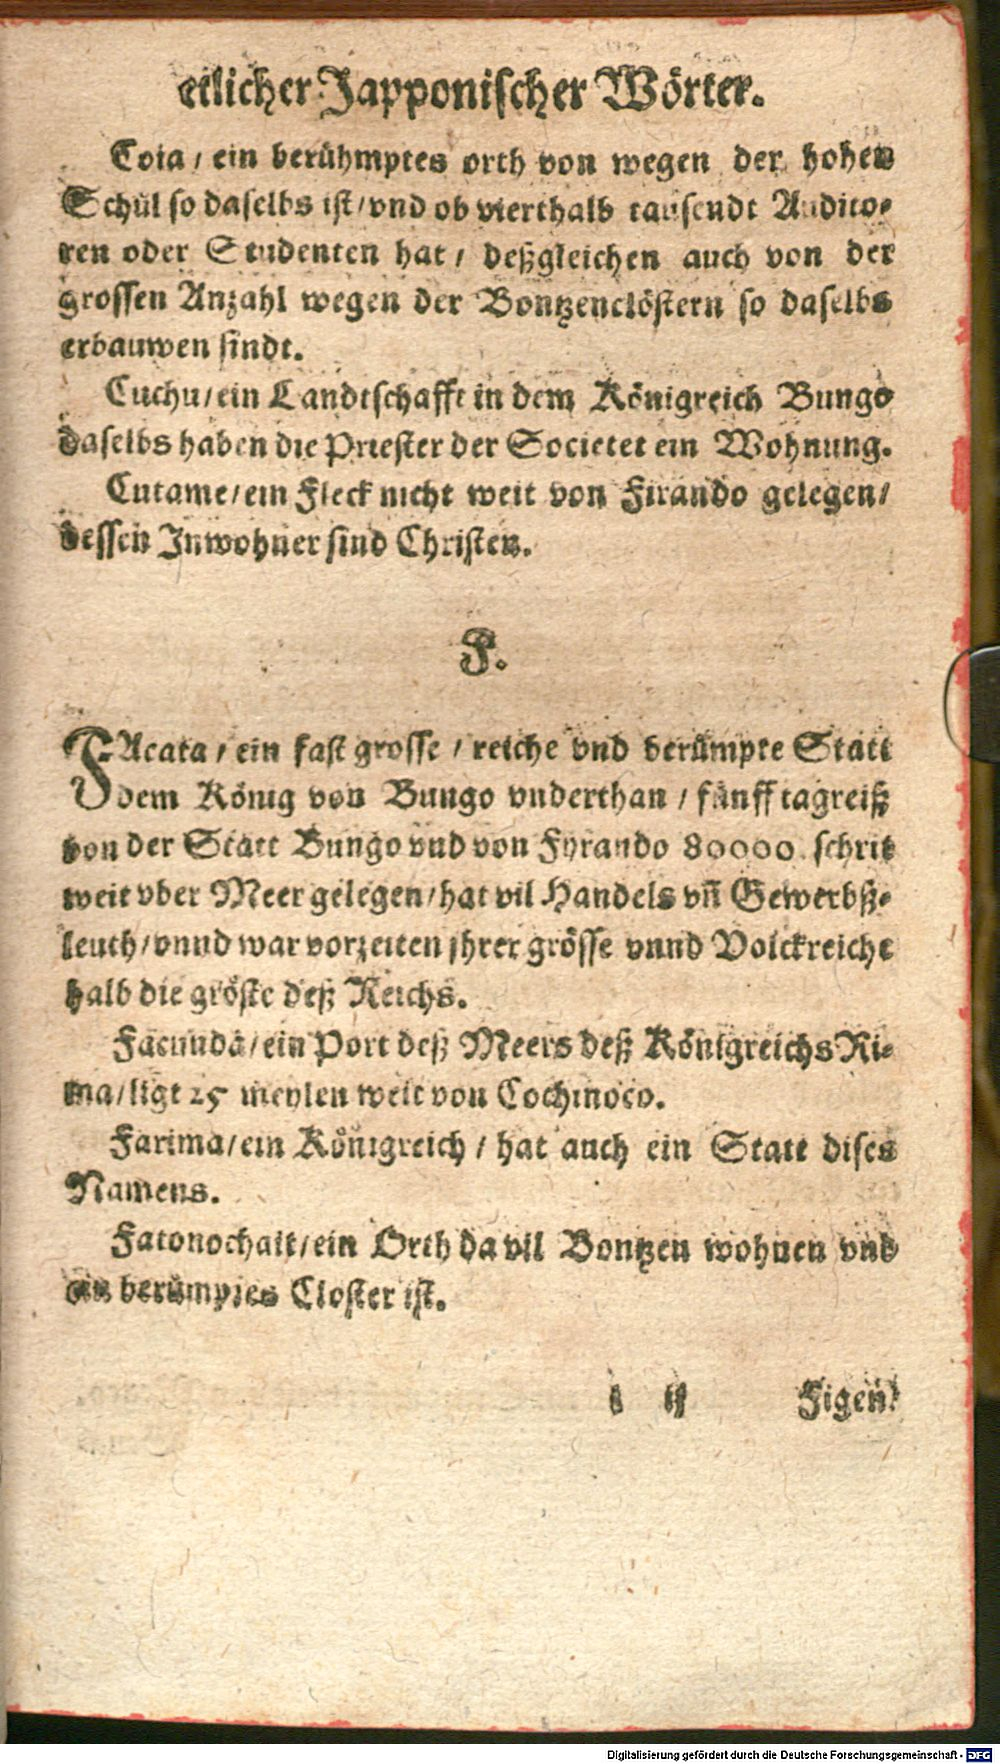 etlicher Japponischer Wörter.
Coia / ein berühmptes orth von wegen der hohen
Schul so daselbs ist / vnd ob vierthalb tausendt Audito-
ren oder Studenten hat / deßgleichen auch von der
grossen Anzahl wegen der Bontzenclöstern so daselbs
erbauwen sindt.
Cuchu / ein Landtschafft in dem Königreich Bungo
daselbs haben die Priester der Societet ein Wohnung.
Cutame / ein Fleck nicht weit von Firando gelegen /
dessen Inwohner sind Christen.
F.
FAcata / ein fast grosse / reiche vnd berümpte Statt
dem König von Bungo vnderthan / fünff tagreiß
von der Statt Bungo vnd von Fyrando 80000. schrit
weit vber Meer gelegen / hat vil Handels vn̄ Gewerbß-
leuth / vnnd war vorzeiten jhrer grösse vnnd Volckreiche
halb die gröste deß Reichs.
Facunda / ein Port deß Meers deß Königreichs Ri-
ma / ligt 25 meylen weit von Cochinoco.
Farima / ein Königreich / hat auch ein Statt dises
Namens.
Fatonochait / ein Orth da vil Bontzen wohnen vnd
ein berümptes Closter ist.
i ij Figen /
Digitalisierung gefördert durch die Deutsche Forschungsgemeinschaft - DFG